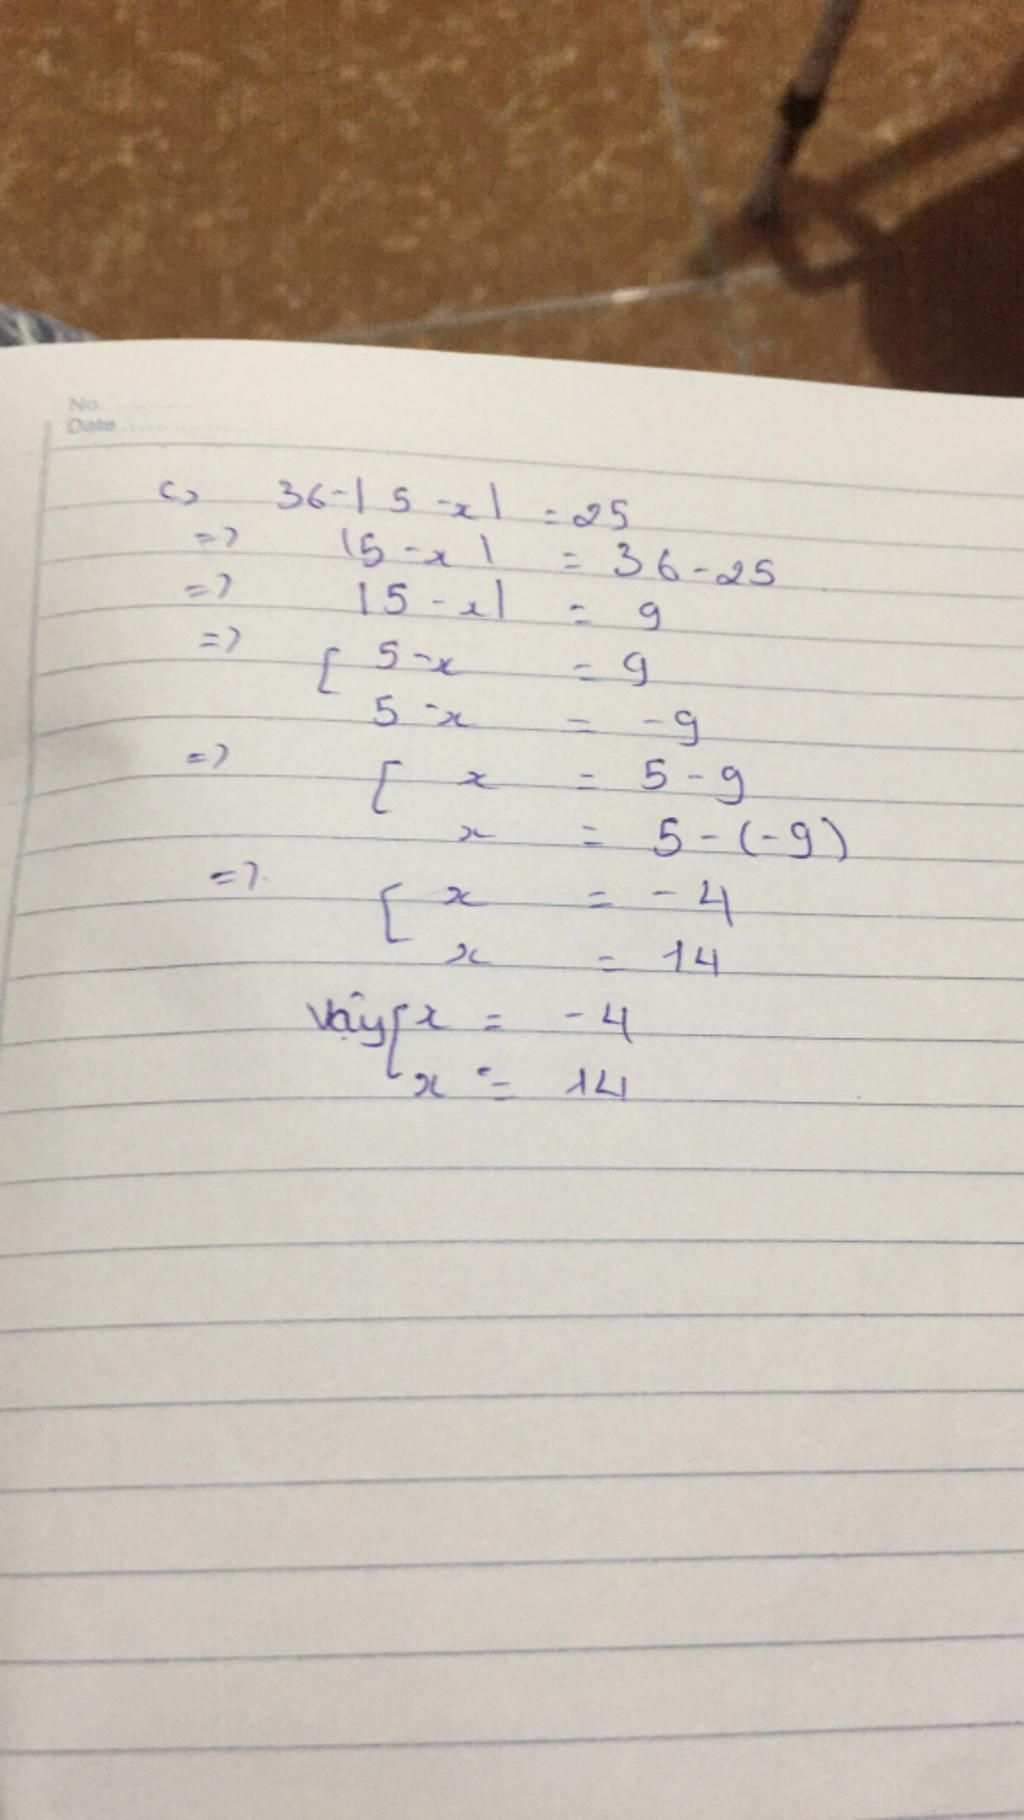 No. ............
Date ....................
c) 36-|5-x| = 25
=> |5-x| = 36-25
=> |5-x| = 9
=> [ 5-x = 9
5-x = -9
=> [ x = 5-9
x = 5-(-9)
=> [ x = -4
x = 14
Vậy [ x = -4
x = 14